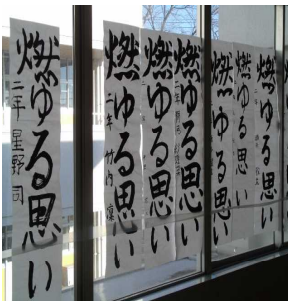 燃ゆる思い
二年 星野 司
燃ゆる思い
二年 竹内 凜
燃ゆる思い
燃ゆる思い
二年
燃ゆる思い
燃ゆる思い
燃ゆる思い